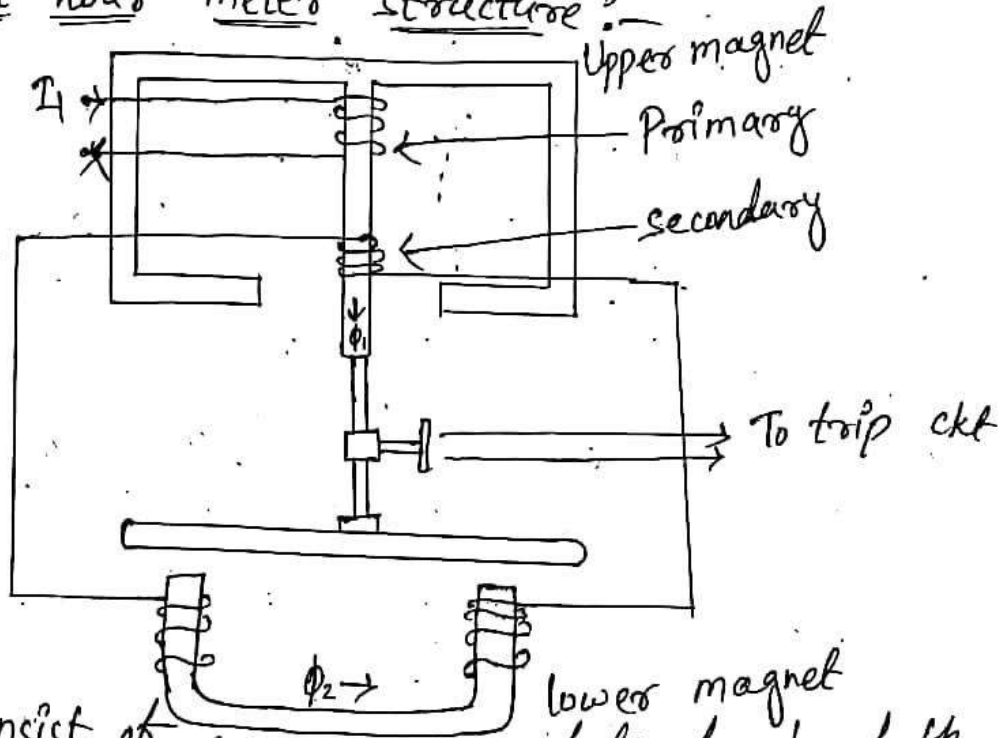 hour meter structure :-
Upper magnet
I1
Primary
secondary
ϕ1
To trip ckt
ϕ2 →
lower magnet
nsist of